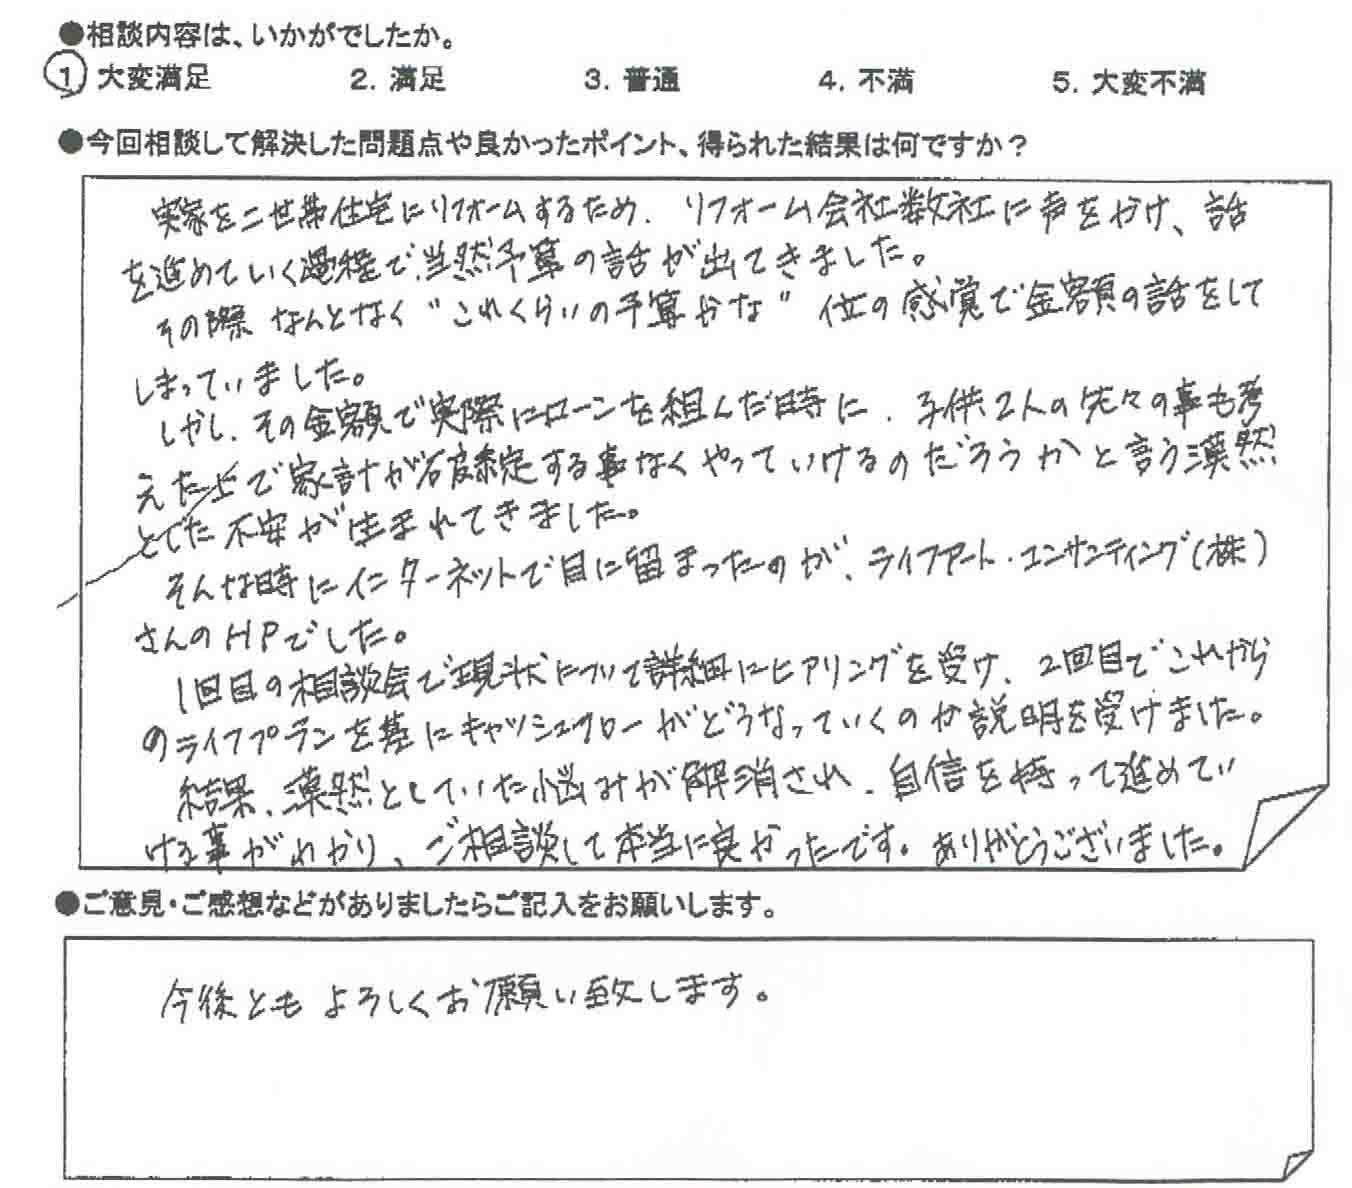 ●相談内容は、いかがでしたか。
1 大変満足 2. 満足 3. 普通 4. 不満 5. 大変不満
●今回相談して解決した問題点や良かったポイント、得られた結果は何ですか？
実家を二世帯住宅にリフォームするため、リフォーム会社数社に声をかけ、話
を進めていく過程で、当然予算の話が出てきました。
その際 なんとなく“これくらいの予算かな”位の感覚で金額の話をして
しまっていました。
しかし、その金額で実際にローンを組んだ時に、子供2人の先々の事も考
えた上で家計が破綻する事なくやっていけるのだろうかと言う漠然
とした不安が生まれてきました。
そんな時にインターネットで目に留まったのが、ライフアート・コンサンティング(株)
さんのHPでした。
1回目の相談会で現状について詳細にヒアリングを受け、2回目でこれから
のライフプランを基にキャッシュフローがどうなっていくのか説明を受けました。
結果、漠然としていた悩みが解消され、自信を持って進めてい
ける事がわかり、ご相談して本当に良かったです。ありがとうございました。
●ご意見・ご感想などがありましたらご記入をお願いします。
今後ともよろしくお願い致します。